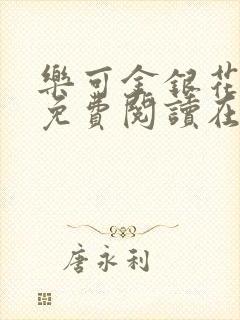 樂可金銀花
免費閱讀在
唐永利